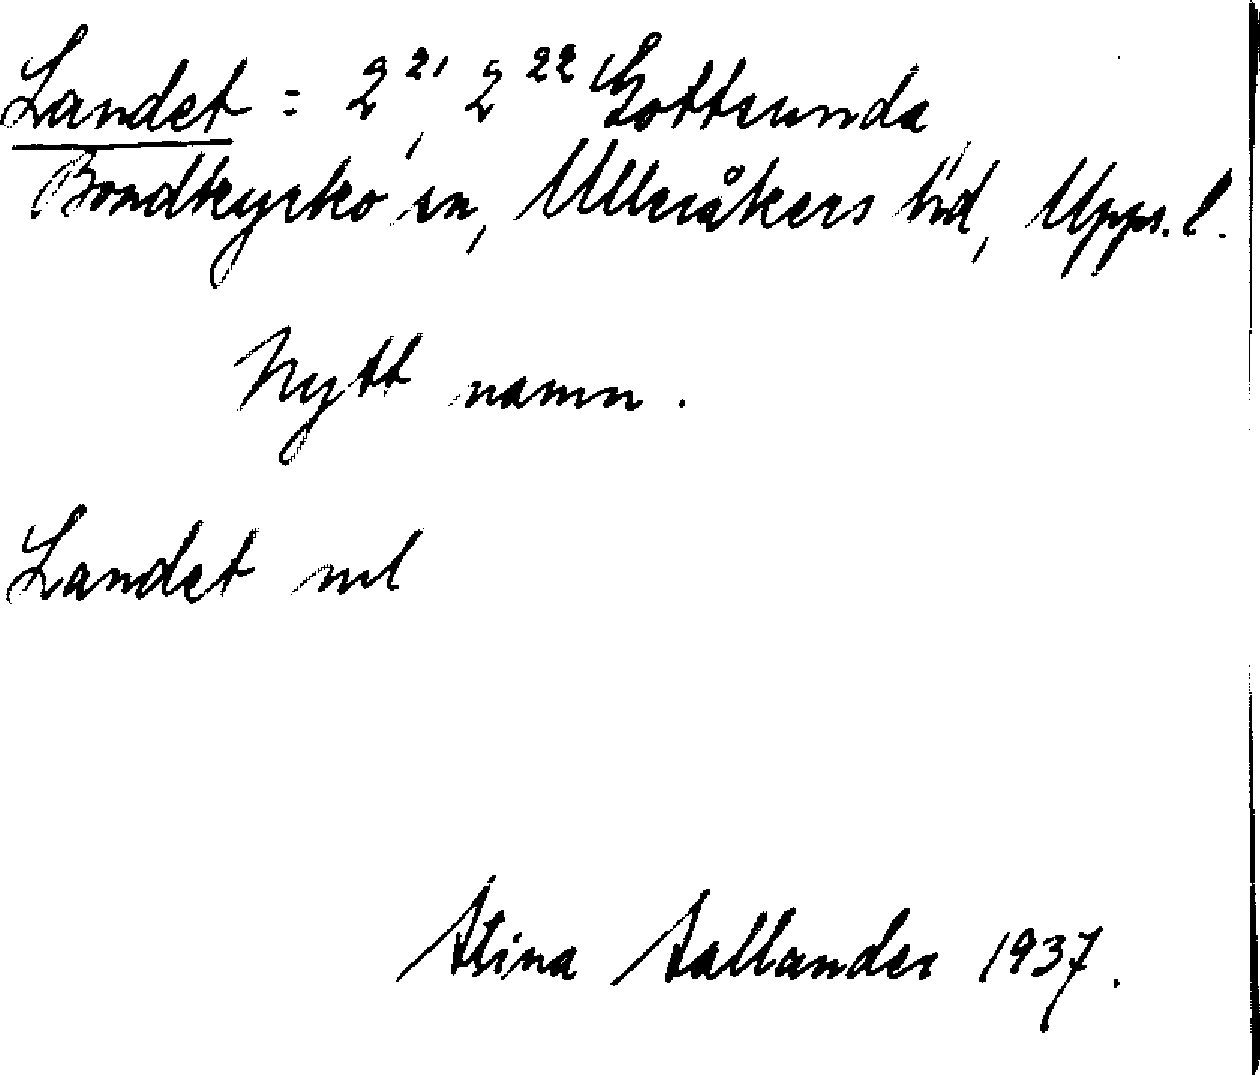 Landet = 2²¹, 2²² Gottsunda
Bondkyrko sn, Ulleråkers hd, Upps. l.
Nytt namn.
Landet
Stina Sallander 1937.